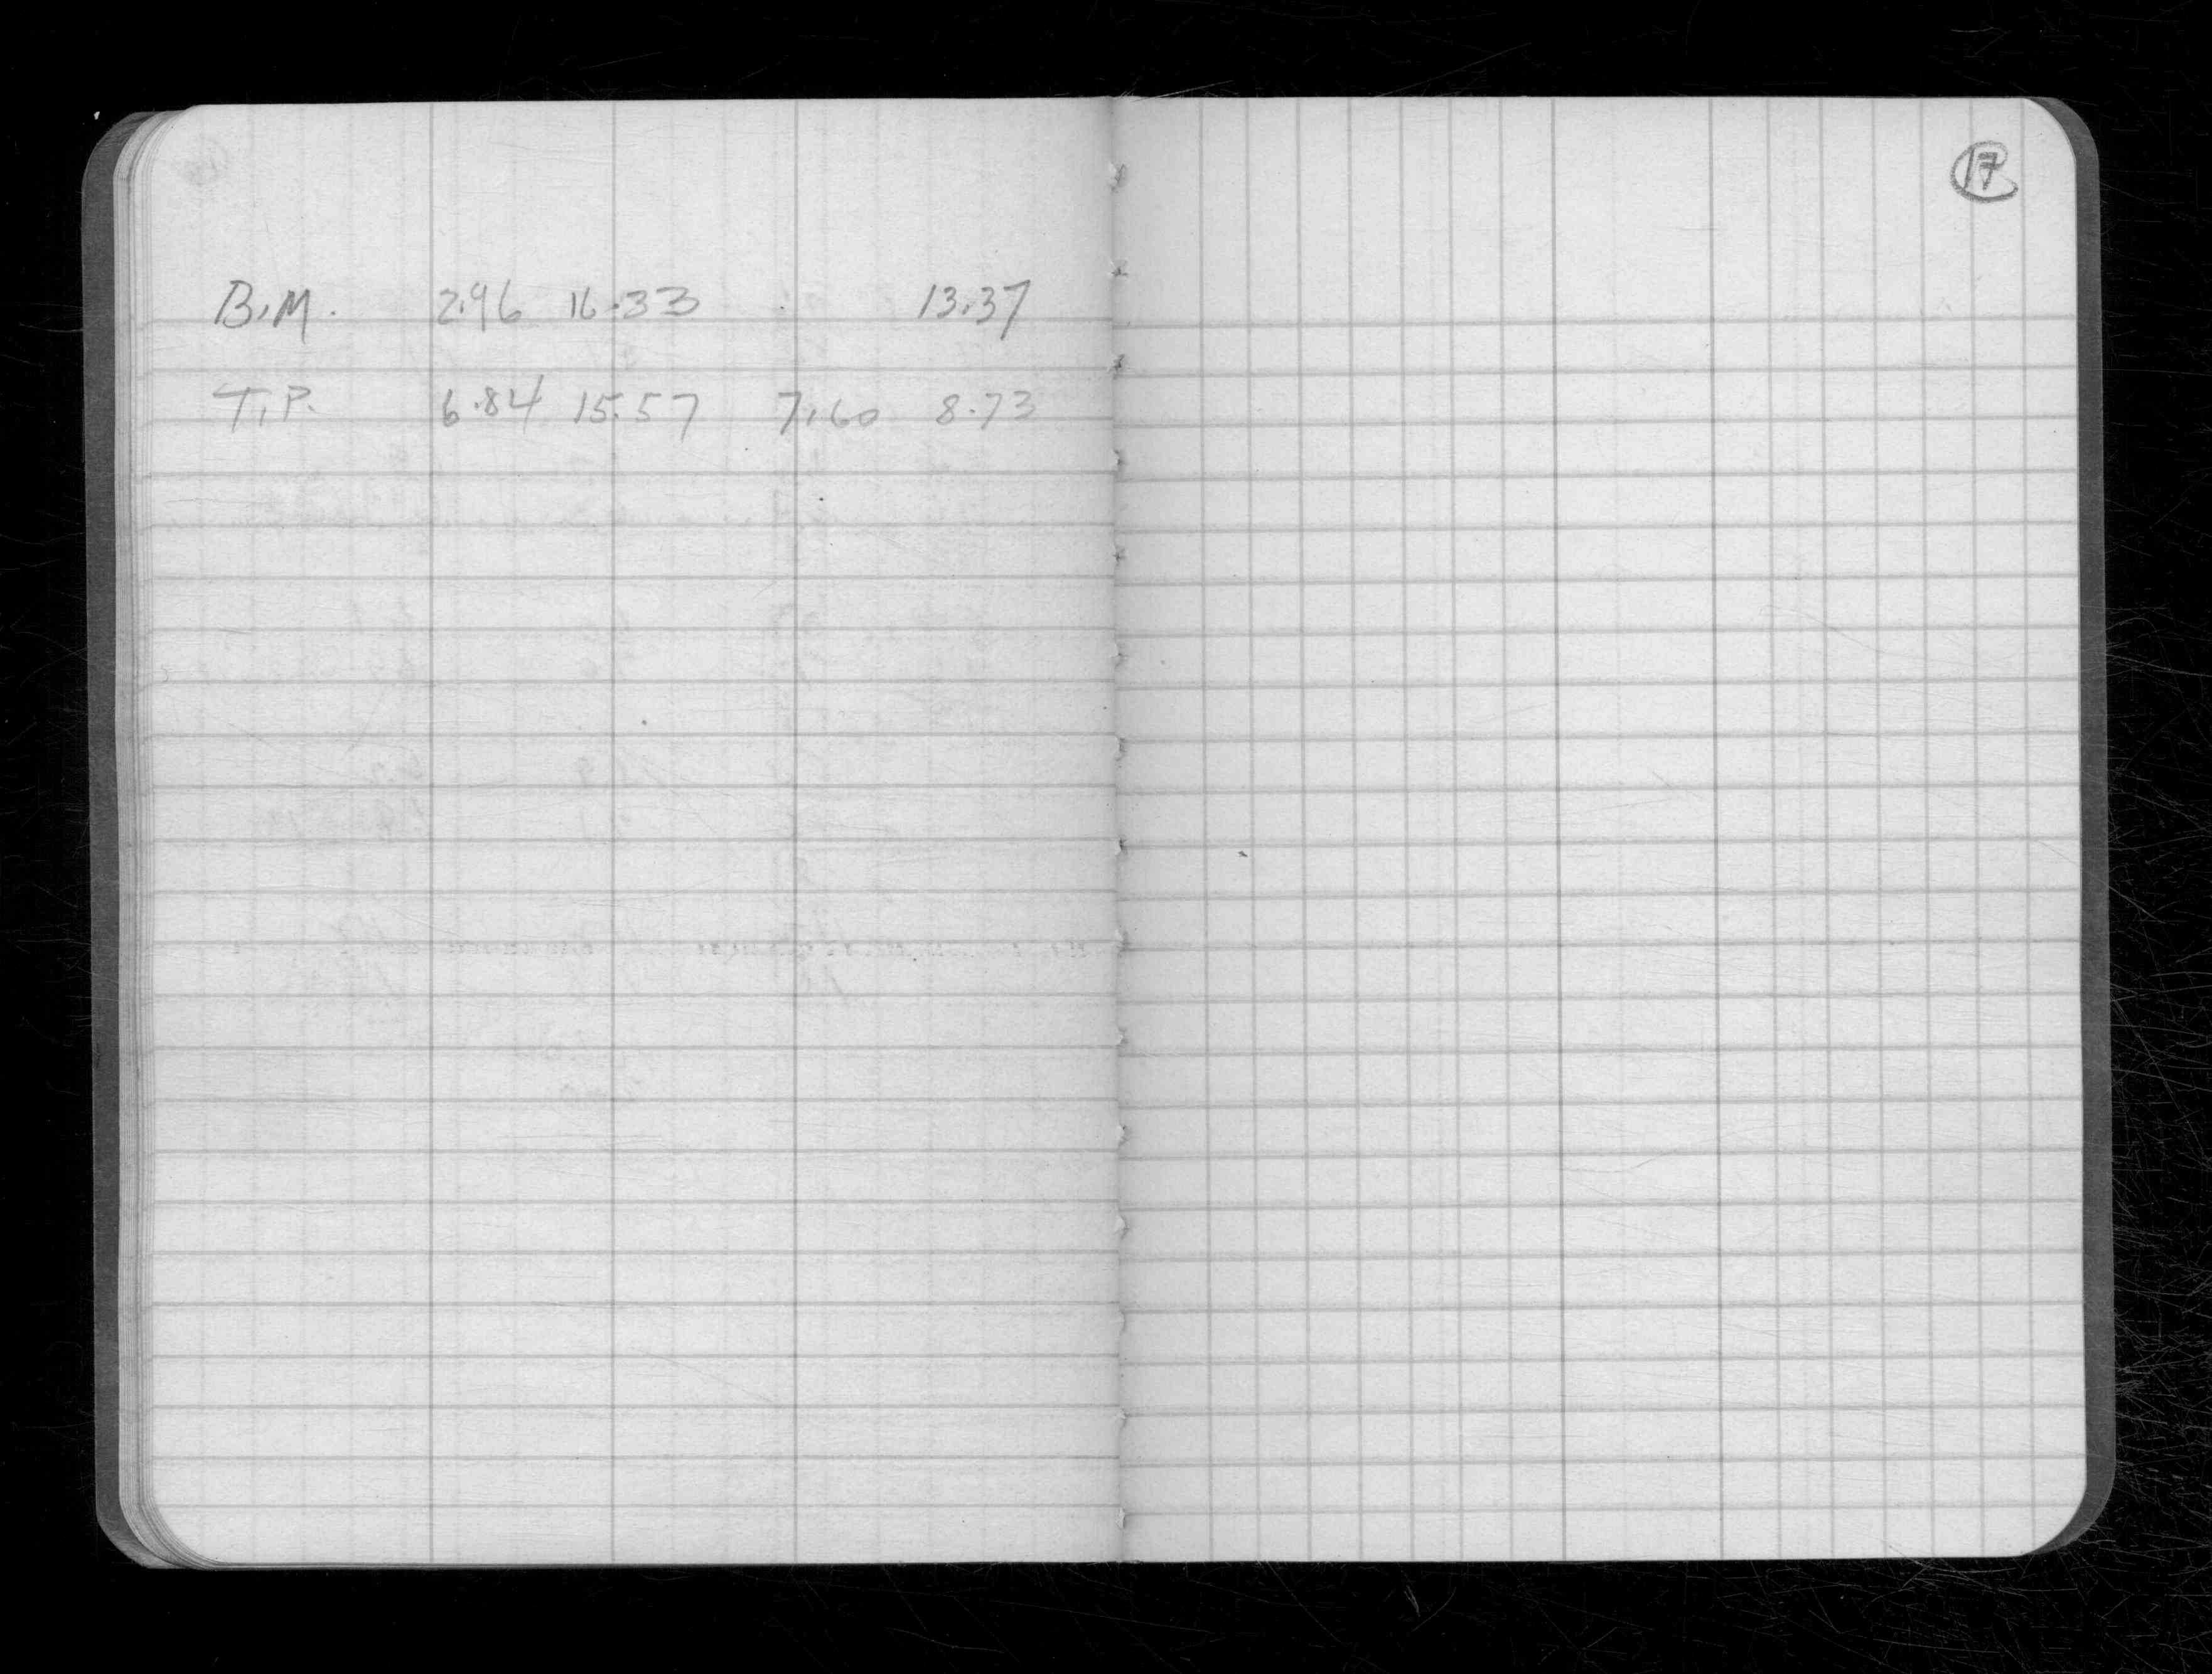 B.M. 2.96 16.33 13.37
T.P. 6.84 15.57 7.60 8.73
17